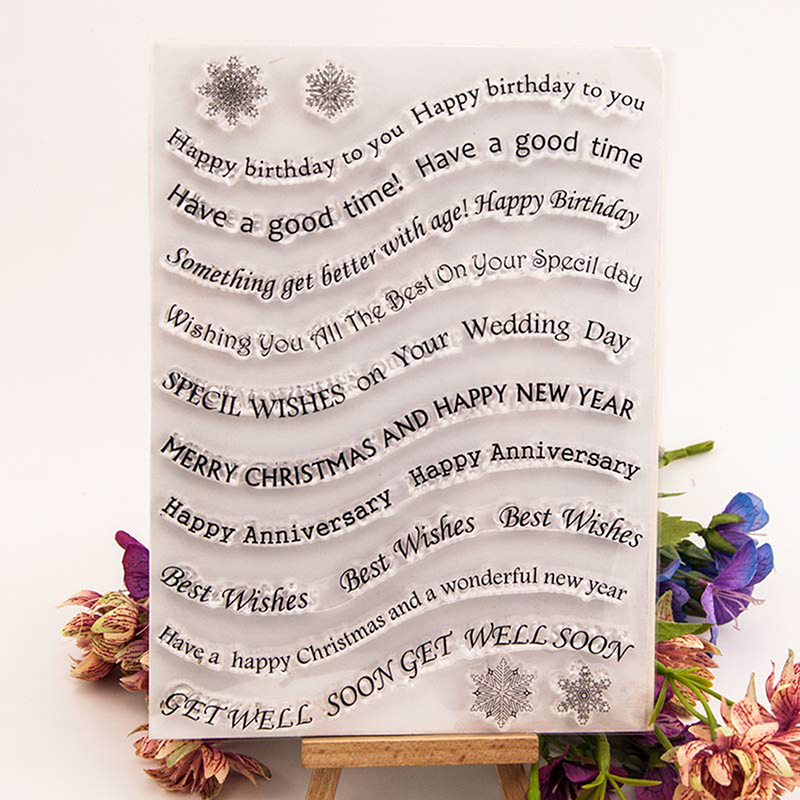 Happy birthday to you Happy birthday to you
Have a good time! Have a good time
Something get better with age! Happy Birthday
Wishing You All The Best On Your Specil day
SPECIL WISHES on Your Wedding Day
MERRY CHRISTMAS AND HAPPY NEW YEAR
Happy Anniversary Happy Anniversary
Best Wishes Best Wishes Best Wishes
Have a happy Christmas and a wonderful new year
GET WELL SOON GET WELL SOON